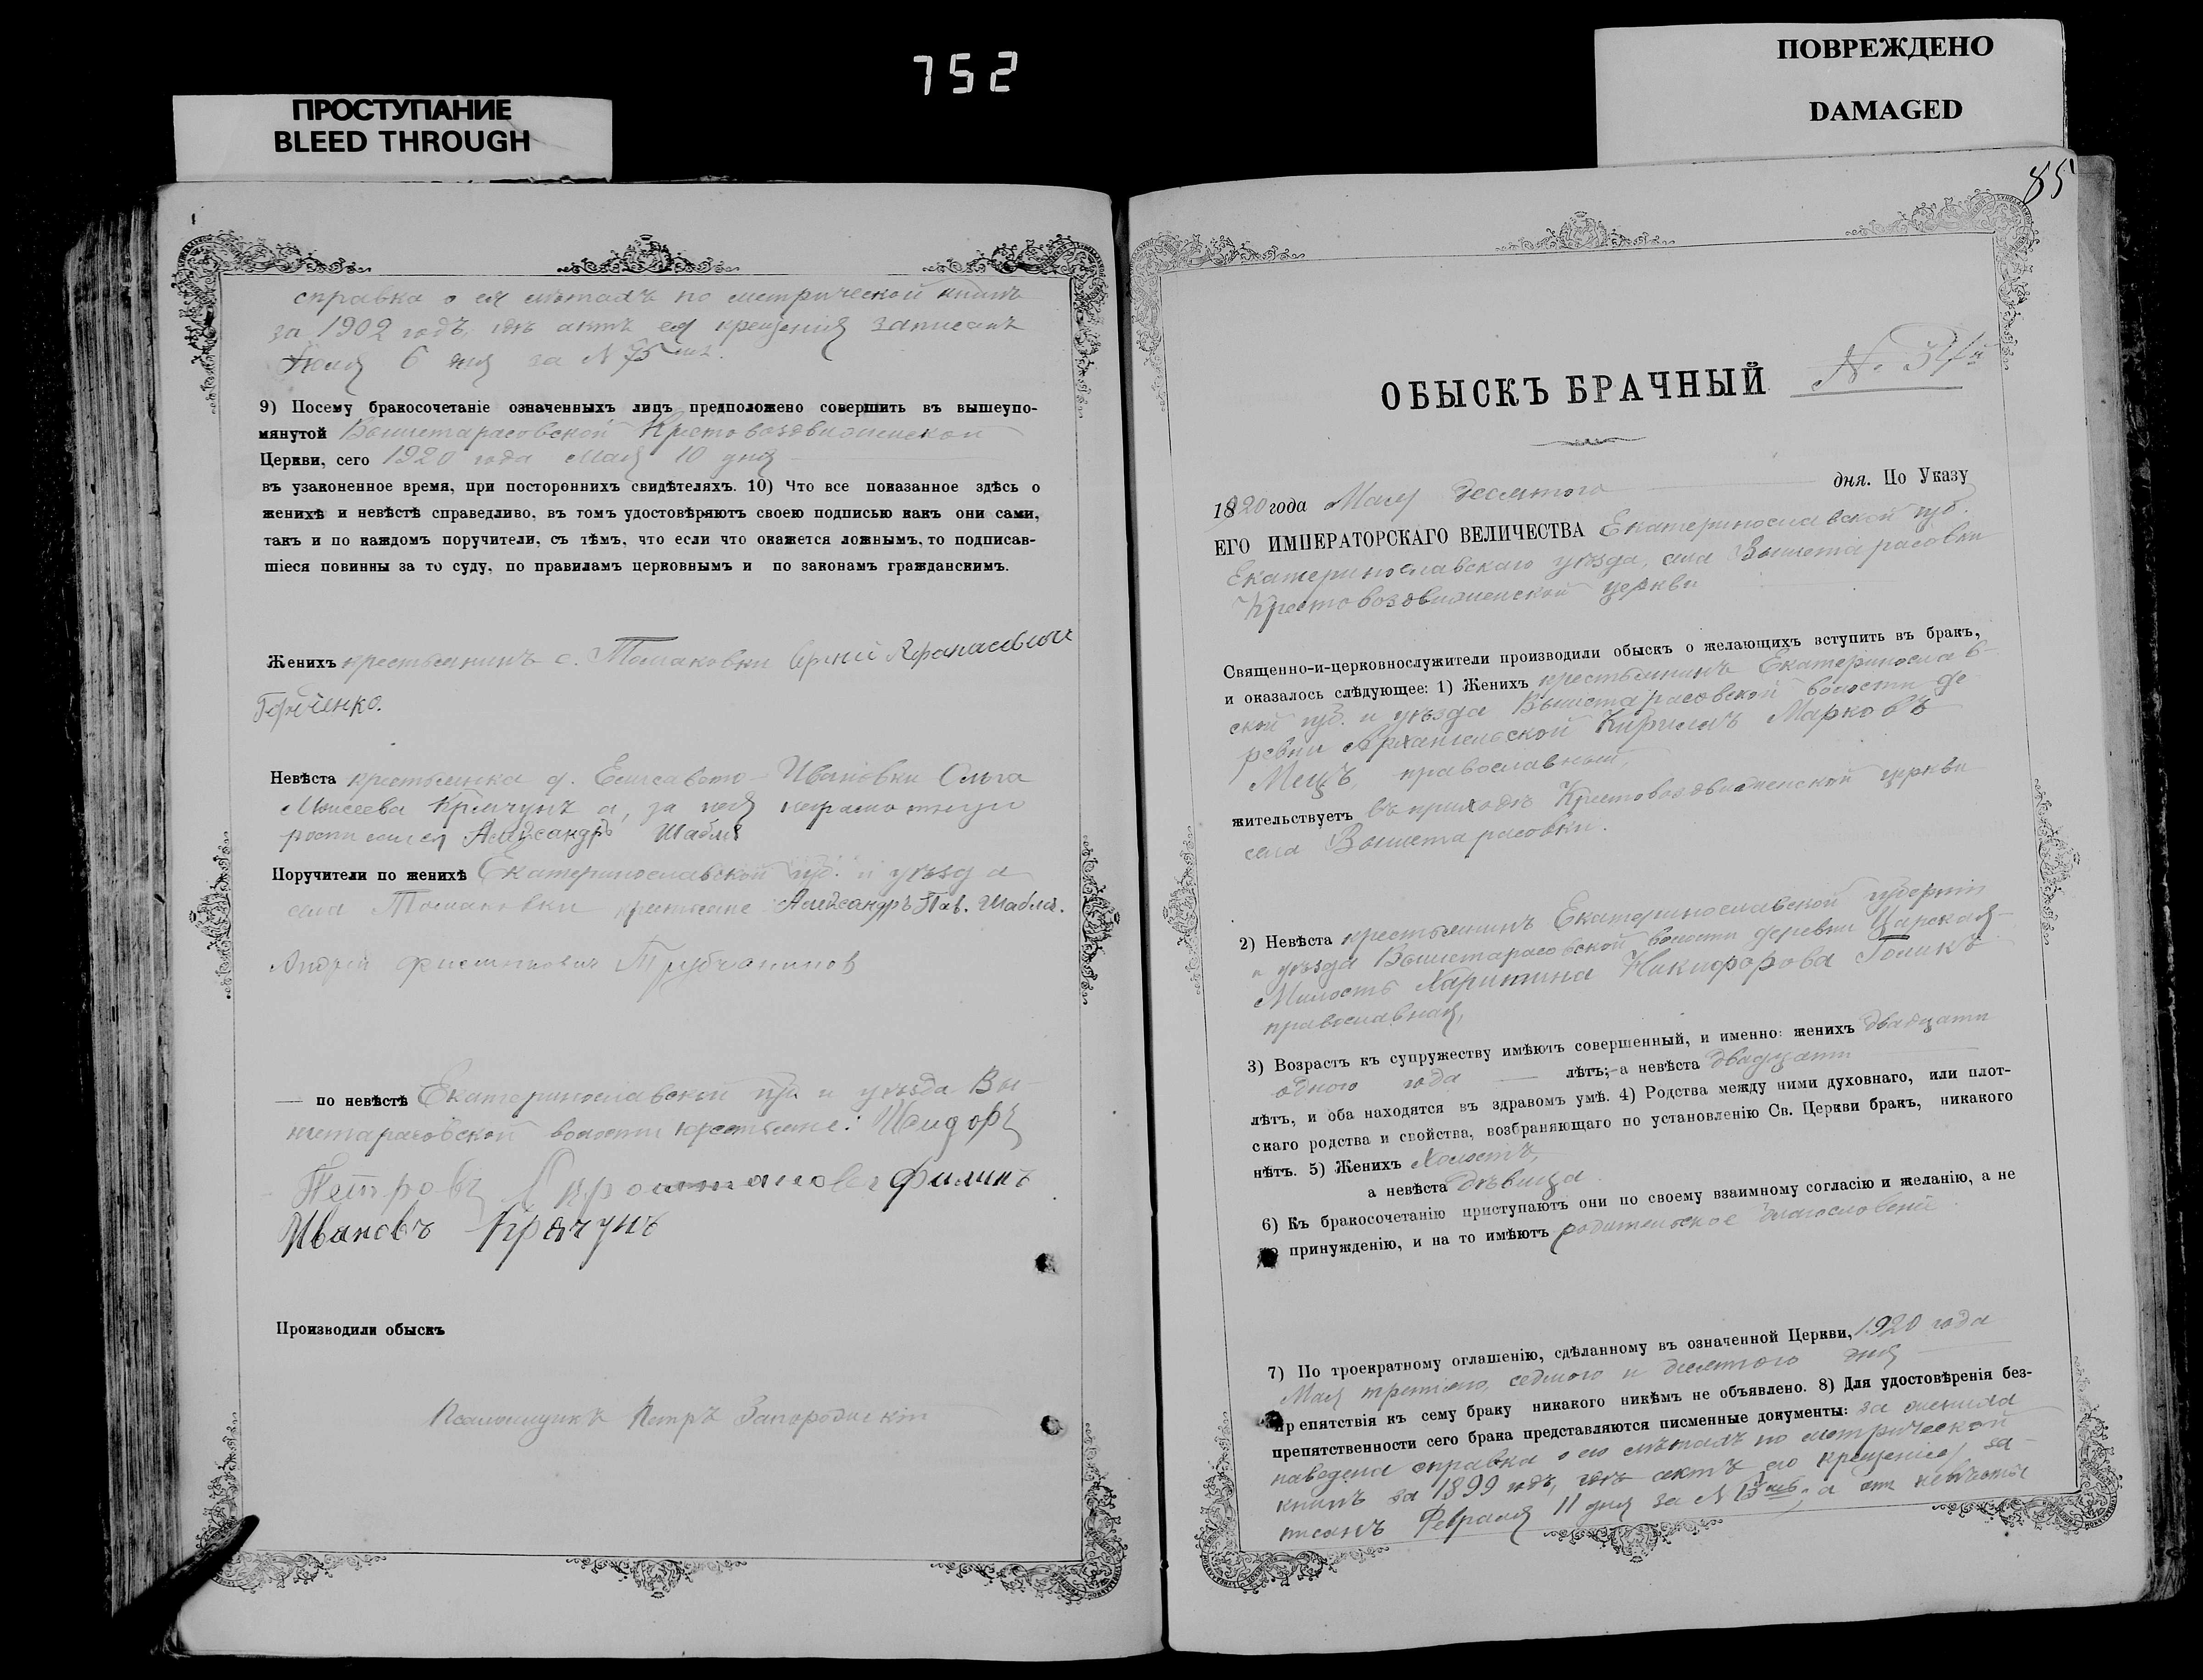 752
ПРОСТУПАНИЕ
BLEED THROUGH
ПОВРЕЖДЕНО
DAMAGED
справка о ея летахъ по метрической книгѣ
за 1902 годъ, гдѣ актъ ея крещенія записанъ
Іюля 6 дня за N 75
9) Посему бракосочетаніе означенныхъ лицъ предположено совершить въ вышеупо-
мянутой Вышетарасовской Крестовоздвиженской
Церкви, сего 1920 года Мая 10 дня
въ узаконенное время, при постороннихъ свидѣтеляхъ. 10) Что все показанное здѣсь о
женихѣ и невѣстѣ справедливо, въ томъ удостовѣряютъ своею подписью какъ они сами,
такъ и по каждомъ поручители, съ тѣмъ, что если что окажется ложнымъ, то подписав-
шіеся повинны за то суду, по правиламъ церковнымъ и по законамъ гражданскимъ.
Женихъ крестьянинъ с. Томаковки
Невѣста крестьянка д. Елисавето-Ивановки Ольга
Моисеева за нея неграмотную
росписался Александръ Шабля
Поручители по женихѣ Екатеринославской губ. и уѣзда
села Томаковки крестьяне Александръ Пав. Шабля.
Андрей Филиппович
— по невѣстѣ Екатеринославской губ. и уѣзда Вы-
шетарасовской волости крестьяне: Исидоръ
Петровъ Филипъ
Ивановъ Крячунъ
Производили обыскъ
Псаломщикъ Петръ
85
ОБЫСКЪ БРАЧНЫЙ N. 34й
1920 года Мая десятого дня. По Указу
ЕГО ИМПЕРАТОРСКАГО ВЕЛИЧЕСТВА Екатеринославской губ.
Екатеринославскаго уѣзда, села Вышетарасовки
Крестовоздвиженской церкви
Священно-и-церковнослужители производили обыскъ о желающихъ вступить въ бракъ,
и оказалось слѣдующее: 1) Женихъ крестьянинъ Екатеринослав-
ской губ. и уѣзда Вышетарасовской волости де
ревни Архангельской Кириллъ Марковъ
Мецъ, православный,
жительствуетъ въ приходѣ Крестовоздвиженской церкви
села Вышетарасовки.
2) Невѣста крестьянинъ Екатеринославской губерніи
и уѣзда Вышетарасовской волости деревни Царская-
Милость Харитина Никифорова Голикъ
православная,
3) Возрастъ къ супружеству имѣютъ совершенный, и именно: женихъ двадцати
одного года — лѣтъ;-а невѣста двадцати
лѣтъ, и оба находятся въ здравомъ умѣ. 4) Родства между ними духовнаго, или плот-
скаго родства и свойства, возбраняющаго по установленію Св. Церкви бракъ, никакого
нѣтъ. 5) Женихъ Холостъ,
а невѣста Дѣвица.
6) Къ бракосочетанію приступаютъ они по своему взаимному согласію и желанію, а не
принужденію, и на то имѣютъ родительское благословеніе.
7) По троекратному оглашенію, сдѣланному въ означенной Церкви, 1920 года
Мая третьяго, седмого и десятого дня
препятствія къ сему браку никакого никѣмъ не объявлено. 8) Для удостовѣренія без-
препятственности сего брака представляются писменные документы: за жениха
наведена справка о его лѣтахъ по метрической
книгѣ за 1899 годъ, гдѣ актъ его крещенія за-
писанъ Февраля 11 дня за N а невѣсты